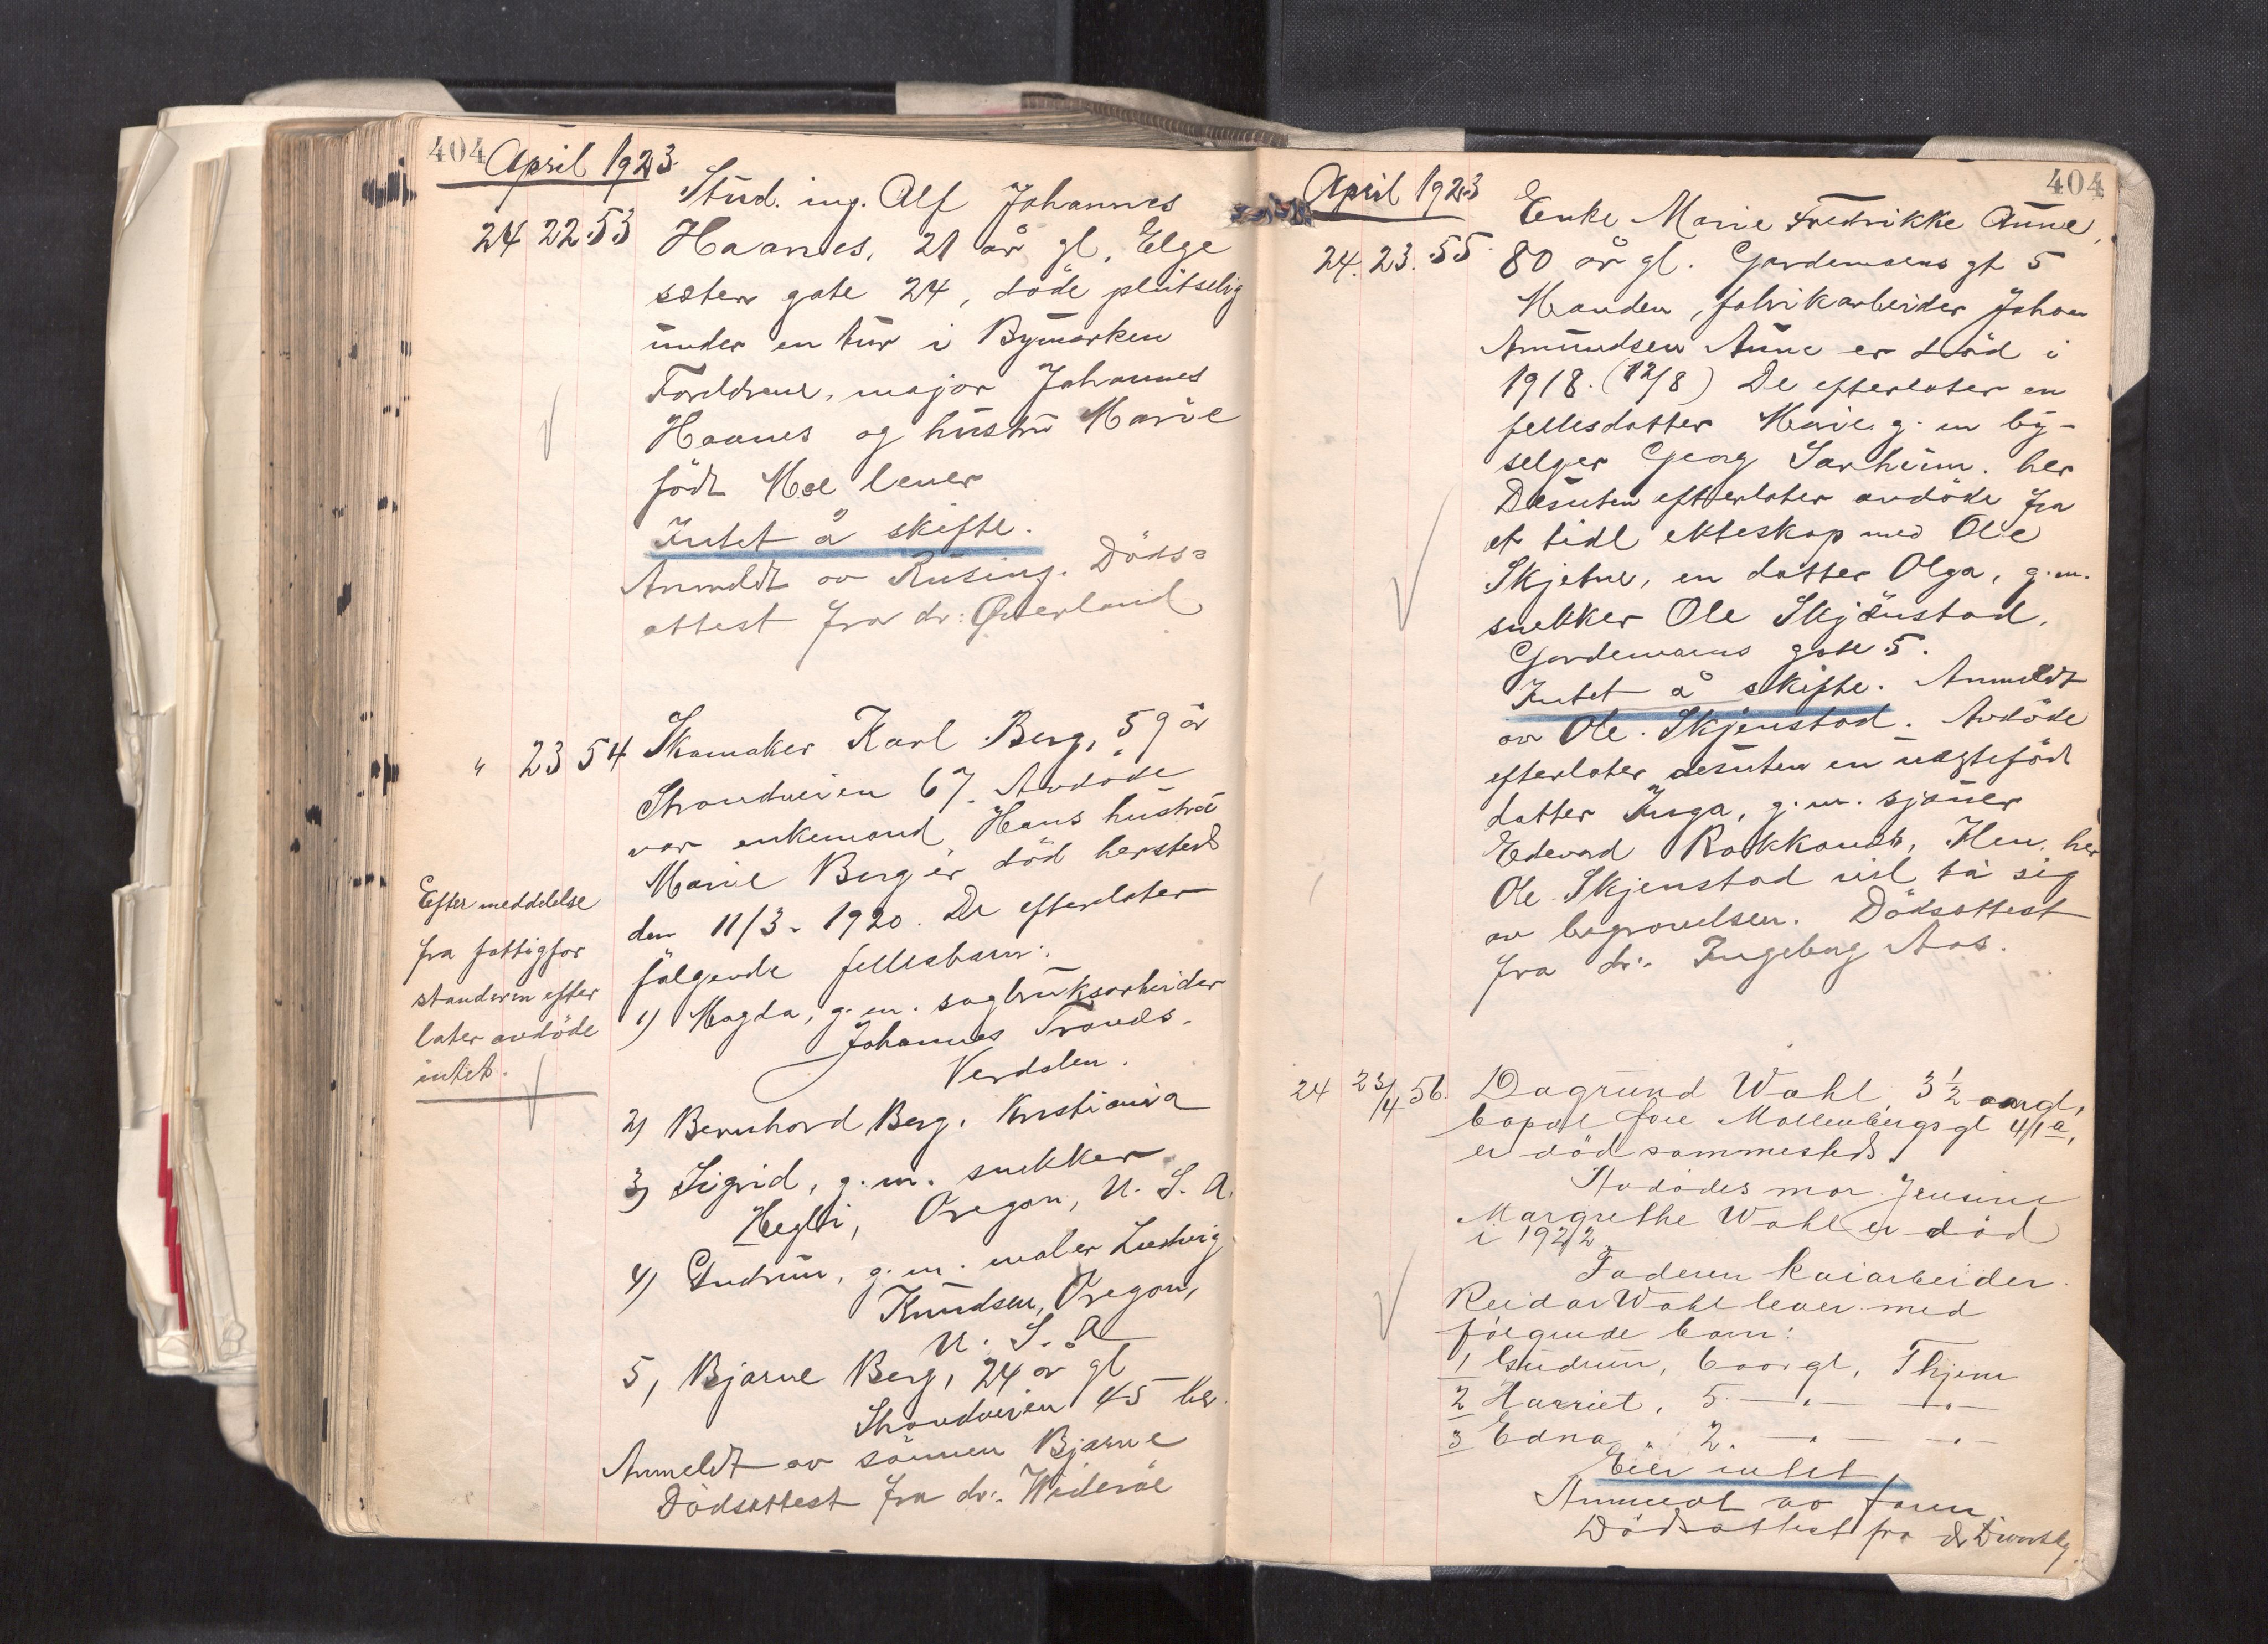 404 April 1923.
24 22 53 Stud. ing. Alf Johannes
Haanes, 21 år gl, Elge
sæter gate 24, döde plutselig
under en tur i Bymarken
Foreldrene, major Johannes
Haanes og hustru Marie
födt Moe lever
Intet å skifte.
Anmeldt av Rusing. Döds=
attest fra dr: Överland
" 23 54 Skomaker Karl Berg, 59 år
Strandveien 67. Avdöde
var enkemand Hans hustru
Marie Berg er död hersteds
den 11/3. 1920. De efterlater
fölgende fellesbarn:
1) Magda, g. m. sagbruksarbeider
Johannes Tronds.
Verdalen.
2) Bernhard Berg. Kristiania
3) Sigrid, g. m. snekker
Hegli, Oregon, U. S. A.
4) Gudrun, g. m. maler Ludvig
Knudsen, Oregon,
U. S. A
5, Bjarne Berg, 24 år gl
Strandveien 45 her.
Anmeldt av sönnen Bjarne
Dödsattest fra dr: Wideröe
Efter meddelelse
fra fattigfor
standeren efter
later avdöde
intet.
April 1923 404
24. 23. 55. Enke Marie Fredrikke Aune,
80 år gl. Gardemoens gt 5
Manden, fabrikarbeider Johan
Amundsen Aune er död i
1918. (12/8) De efterlater en
fellesdatter Marie g. m by-
selger Georg Sarheim. her
Desuten efterlater avdöde fra
et tidl ekteskap med Ole
Skjetne, en datter Olga, g. m.
snekker Ole Skjönstad,
Gardemoens gate 5.
Intet å skifte. Anmeldt
av Ole. Skjenstad. Avdöde
efterlater desuten en uegtefödt
datter Inga, g. m. sjauer
Edevard Rokkones, Ilen. her
Ole Skjenstad vil ta sig
av begravelsen. Dödsattest
fra dr: Ingeborg Aas.
24 23/4 56. Dagrund Wahl 3 1/2 aargl,
bopæl Övre Møllenbergsgt 41 a,
er död sammesteds.
Avdödes mor Jensine
Margrethe Wahl er död
i 1922
Faderen kaiarbeider
Reidar Wahl lever med
fölgende barn:
1 Gudrun, 6 aar gl, Thjem
2 Harriet, 5 — " — — " —
3 Edna " 2. — " — — " —
Eier intet
Anmeldt av faren
Dödsattest fra dr